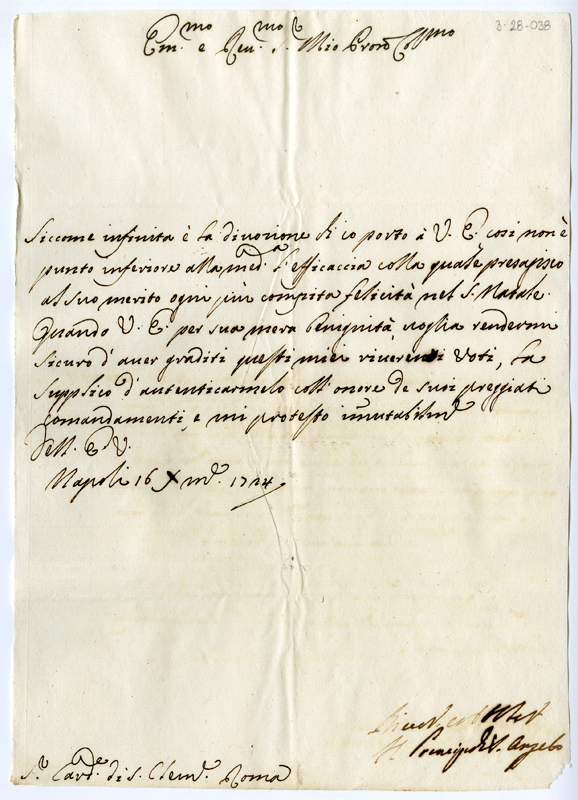 3-28-038
Em.mo e Reu.mo S.r Mio Pron Coll.mo
Siccome infinita è la diuozione ch'io porto à V. E. così non è
punto inferiore alla med.a l'efficacia colla quale presagisco
al suo merito ogni più compita felicità nel S. Natale.
Quando V. E. per sua mera benignità uoglia rendermi
sicuro d'auer graditi questi miei riuerenti voti, la
supplico d'autenticarmelo coll'onore de suoi preggiati
comandamenti, e mi protesto immutabilm.e
Dell'E. V.
Napoli 16 Xm.e 1724
Il Principe di S. Angelo
S.r Card.e di S. Clem.e Roma